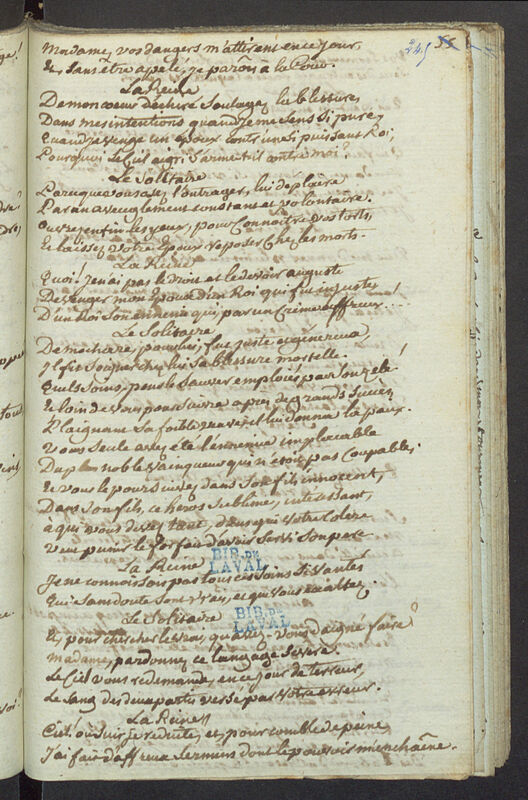 245
Madame, vos dangers m'attirent en ce jour,
Et, sans être apelé, je parois à la Cour.
La Reine
De mon coeur déchiré soulagez la blessure,
Dans mes intentions quand je me sens si pure,
Quand je venge un époux contr'un si puissant Roi,
Pourquoi le Ciel aigri s'arme-t-il contre moi?
Le Solitaire
Parceque vous osez l'outrager, lui déplaire
Par un aveuglement constant et volontaire.
Ouvrez enfin les yeux, pour connoître vos torts,
Et laissez votre époux reposer chez les morts.
La Reine
Quoi! Je n'ai pas le droit et le devoir auguste
De venger mon époux d'un Roi qui fut injuste,
D'un Roi son ennemi qui, par un crime affreux...!
Le Solitaire
Démochare, pour lui, fut juste et généreux,
Il fit soigner chez lui sa blessure mortelle.
Quels soins, pour le sauver employés par son zèle!
Et loin de vous poursuivre après de grands succès,
Plaignant sa foible veuve il lui donna la paix.
Vous seule avez été l'ennemie implacable
Du plus noble vainqueur qui n'étoit pas coupable;
Et vous le poursuivez dans son fils innocent,
Dans son fils, ce héros sublime, intéressant,
à qui vous devez tant, dans qui votre colère
Veut punir le forfait d'avoir servi son père.
La Reine
Je ne connoissois pas tous ces soins si vantés
Qui sans doute sont vrais, et que vous racontez.
Le Solitaire
Et, pour chercher le vrai, qu'avez-vous daigné faire?
Madame, pardonnez ce langage sévère.
Le Ciel vous redemande, en ce jour de terreur,
Le sang des deux partis versé par votre erreur.
La Reine
Ciel! où suis-je réduite, et, pour comble de peine,
J'ai fait d'affreux sermens dont le pouvoir m'enchaîne.
BIB. DE
LAVAL
BIB. DE
LAVAL